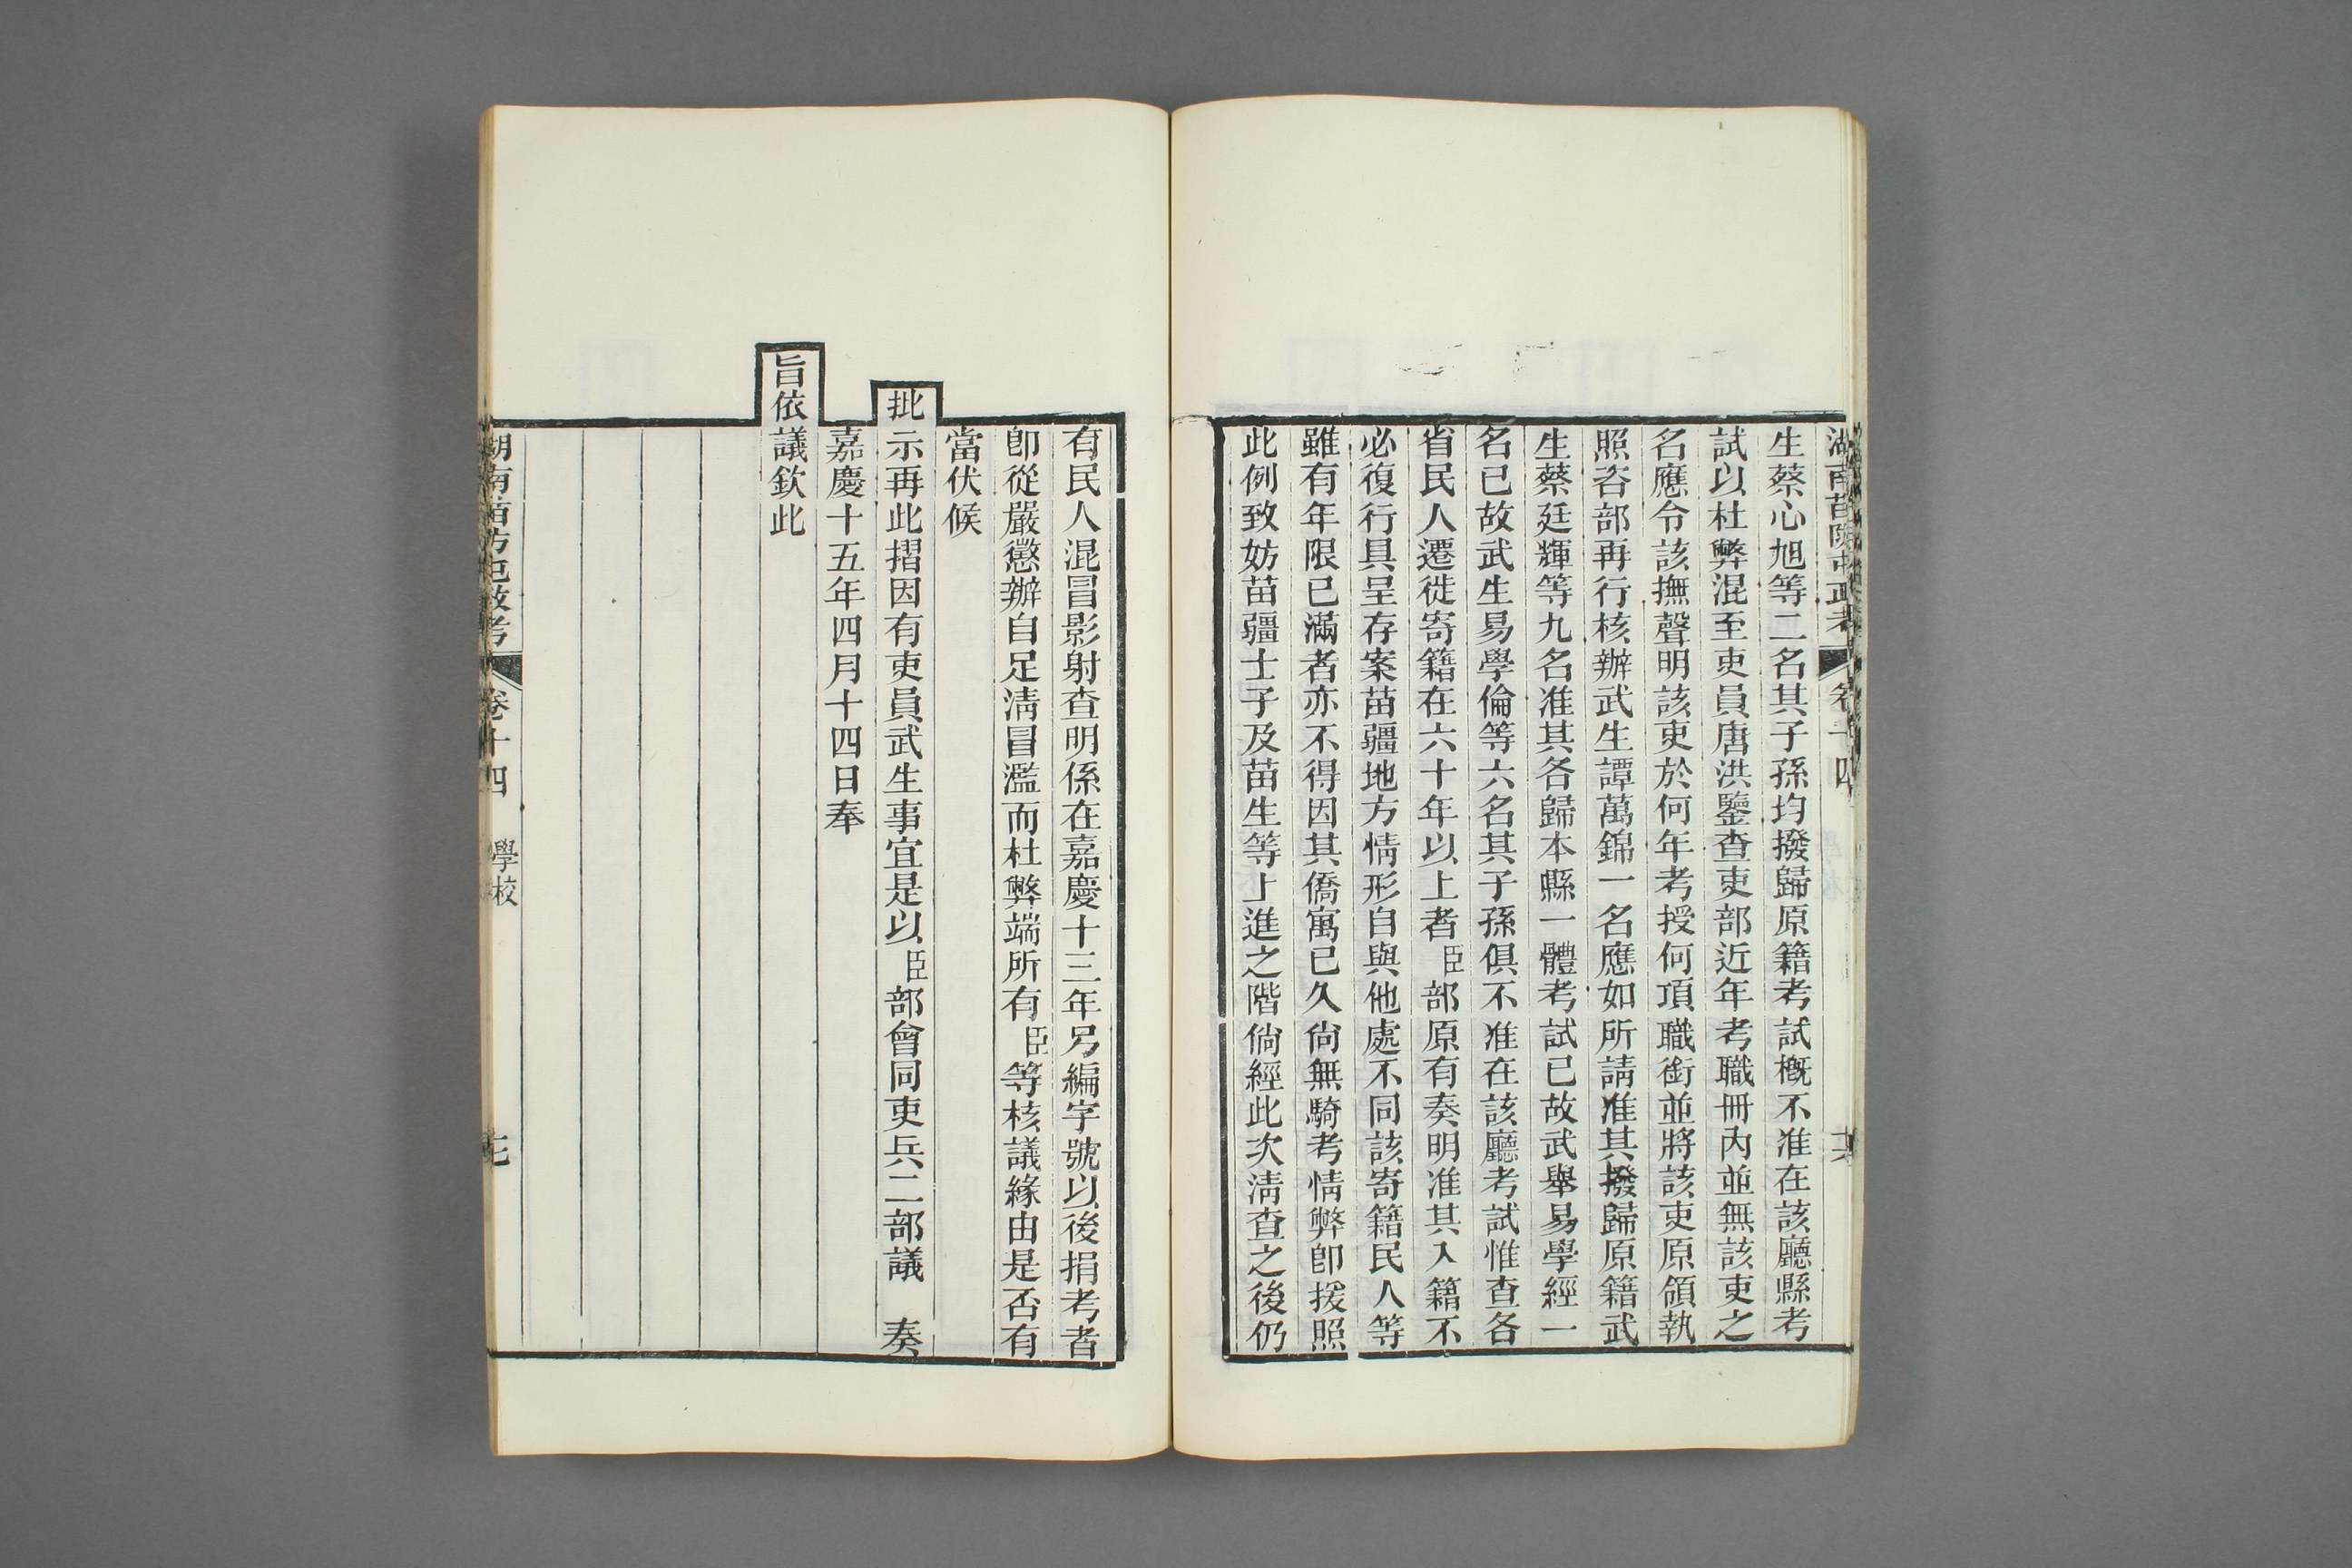 生蔡心旭等二名其子孫均撥歸原籍考試槪不准在該廳縣考
試以杜弊混至吏員唐洪鑒查吏部近年考職冊內並無該吏之
名應令該撫聲明該吏於何年考授何項職銜並將該吏原領執
照咨部再行核辦武生譚萬錦一名應如所請准其撥歸原籍武
生蔡廷輝等九名准其各歸本縣一體考試已故武舉易學經一
名已故武生易學倫等六名其子孫俱不准在該廳考試惟查各
省民人遷徙寄籍在六十年以上者臣部原有奏明准其入籍不
必復行具呈存案苗疆地方情形自與他處不同該寄籍民人等
雖有年限已滿者亦不得因其僑寓已久尙無騎考情弊卽援照
此例致妨苗疆士子及苗生等上進之階倘經此次淸查之後仍
有民人混冒影射查明係在嘉慶十三年另編字號以後捐考者
卽從嚴懲辦自足淸冒濫而杜弊端所有臣等核議緣由是否有
當伏候
批示再此摺因有吏員武生事宜是以臣部會同吏兵二部議 奏
嘉慶十五年四月十四日奉
旨依議欽此
卷十四 學校